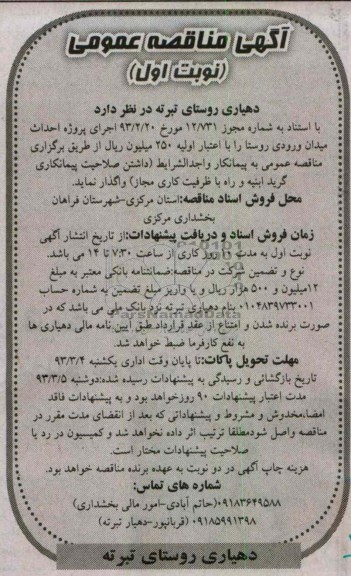 آگهی مناقصه عمومی
(نوبت اول)
دهیاری روستای تبرته در نظر دارد
با استناد به شماره مجوز ۱۲/۷۳۱ مورخ ۹۳/۲/۲۰ اجرای پروژه احداث
میدان ورودی روستا را با اعتبار اولیه ۲۵۰ میلیون ریال از طریق برگزاری
مناقصه عمومی به پیمانکار واجدالشرایط (داشتن صلاحیت پیمانکاری
گرید ابنیه و راه با ظرفیت کاری مجاز) واگذار نماید.
محل فروش اسناد مناقصه:استان مرکزی-شهرستان فراهان
بخشداری مرکزی
زمان فروش اسناد و دریافت پیشنهادات:از تاریخ انتشار آگهی
نوبت اول به مدت روز کاری از ساعت ۷:۳۰ تا ۱۴ می باشد.
نوع و تضمین شرکت در مناقصه:ضمانتنامه بانکی معتبر به مبلغ
۱۲میلیون و ۵۰۰ هزار ریال و یا واریز مبلغ تضمین به شماره حساب
۰۱۰۴۸۳۹۷۳۳۰۰۱ بنام دهیاری تبرته نزد بانک ملی می باشد که در
صورت برنده شدن و امتناع از عقد قرارداد طبق آیین نامه مالی دهیاری ها
به نفع کارفرما ضبط خواهد شد.
مهلت تحویل پاکات:تا پایان وقت اداری یکشنبه ۹۳/۳/۴
تاریخ بازگشائی و رسیدگی به پیشنهادات رسیده شده:دوشنبه ۹۳/۳/۵
مدت اعتبار پیشنهادات ۹۰ روزخواهد بود و به پیشنهادات فاقد
امضا،مخدوش و مشروط و پیشنهاداتی که بعد از انقضای مدت مقرر در
مناقصه واصل شودمطلقا ترتیب اثر داده نخواهد شد و کمیسیون در رد یا
صلاحیت پیشنهادات مختار است.
هزینه چاپ آگهی در دو نوبت به عهده برنده مناقصه خواهد بود.
شماره های تماس:
۰۹۱۸۳۶۴۹۵۸۸(حاتم آبادی-امور مالی بخشداری)
۰۹۱۸۵۹۹۱۳۹۸ (قربانپور-دهیار تبرته)
دهیاری روستای تبرته